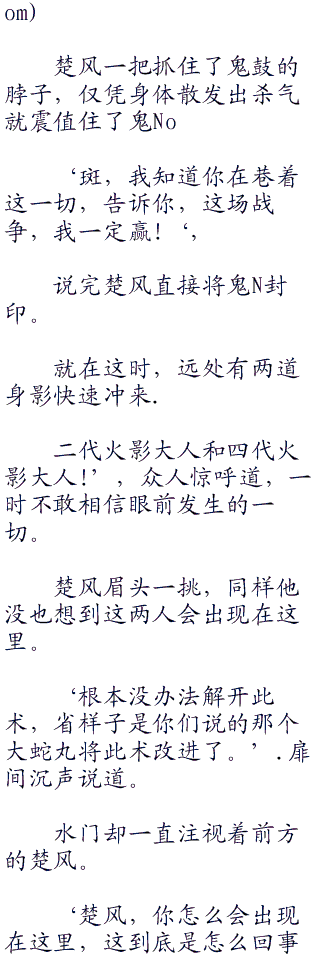 om)
楚风一把抓住了鬼鼓的
脖子，仅凭身体散发出杀气
就震值住了鬼No
‘斑，我知道你在巷着
这一切，告诉你，这场战
争，我一定赢！‘，
说完楚风直接将鬼N封
印。
就在这时，远处有两道
身影快速冲来.
二代火影大人和四代火
影大人!’，众人惊呼道，一
时不敢相信眼前发生的一
切。
楚风眉头一挑，同样他
没也想到这两人会出现在这
里。
‘根本没办法解开此
术，省样子是你们说的那个
大蛇丸将此术改进了。’.扉
间沉声说道。
水门却一直注视着前方
的楚风。
‘楚风，你怎么会出现
在这里，这到底是怎么回事